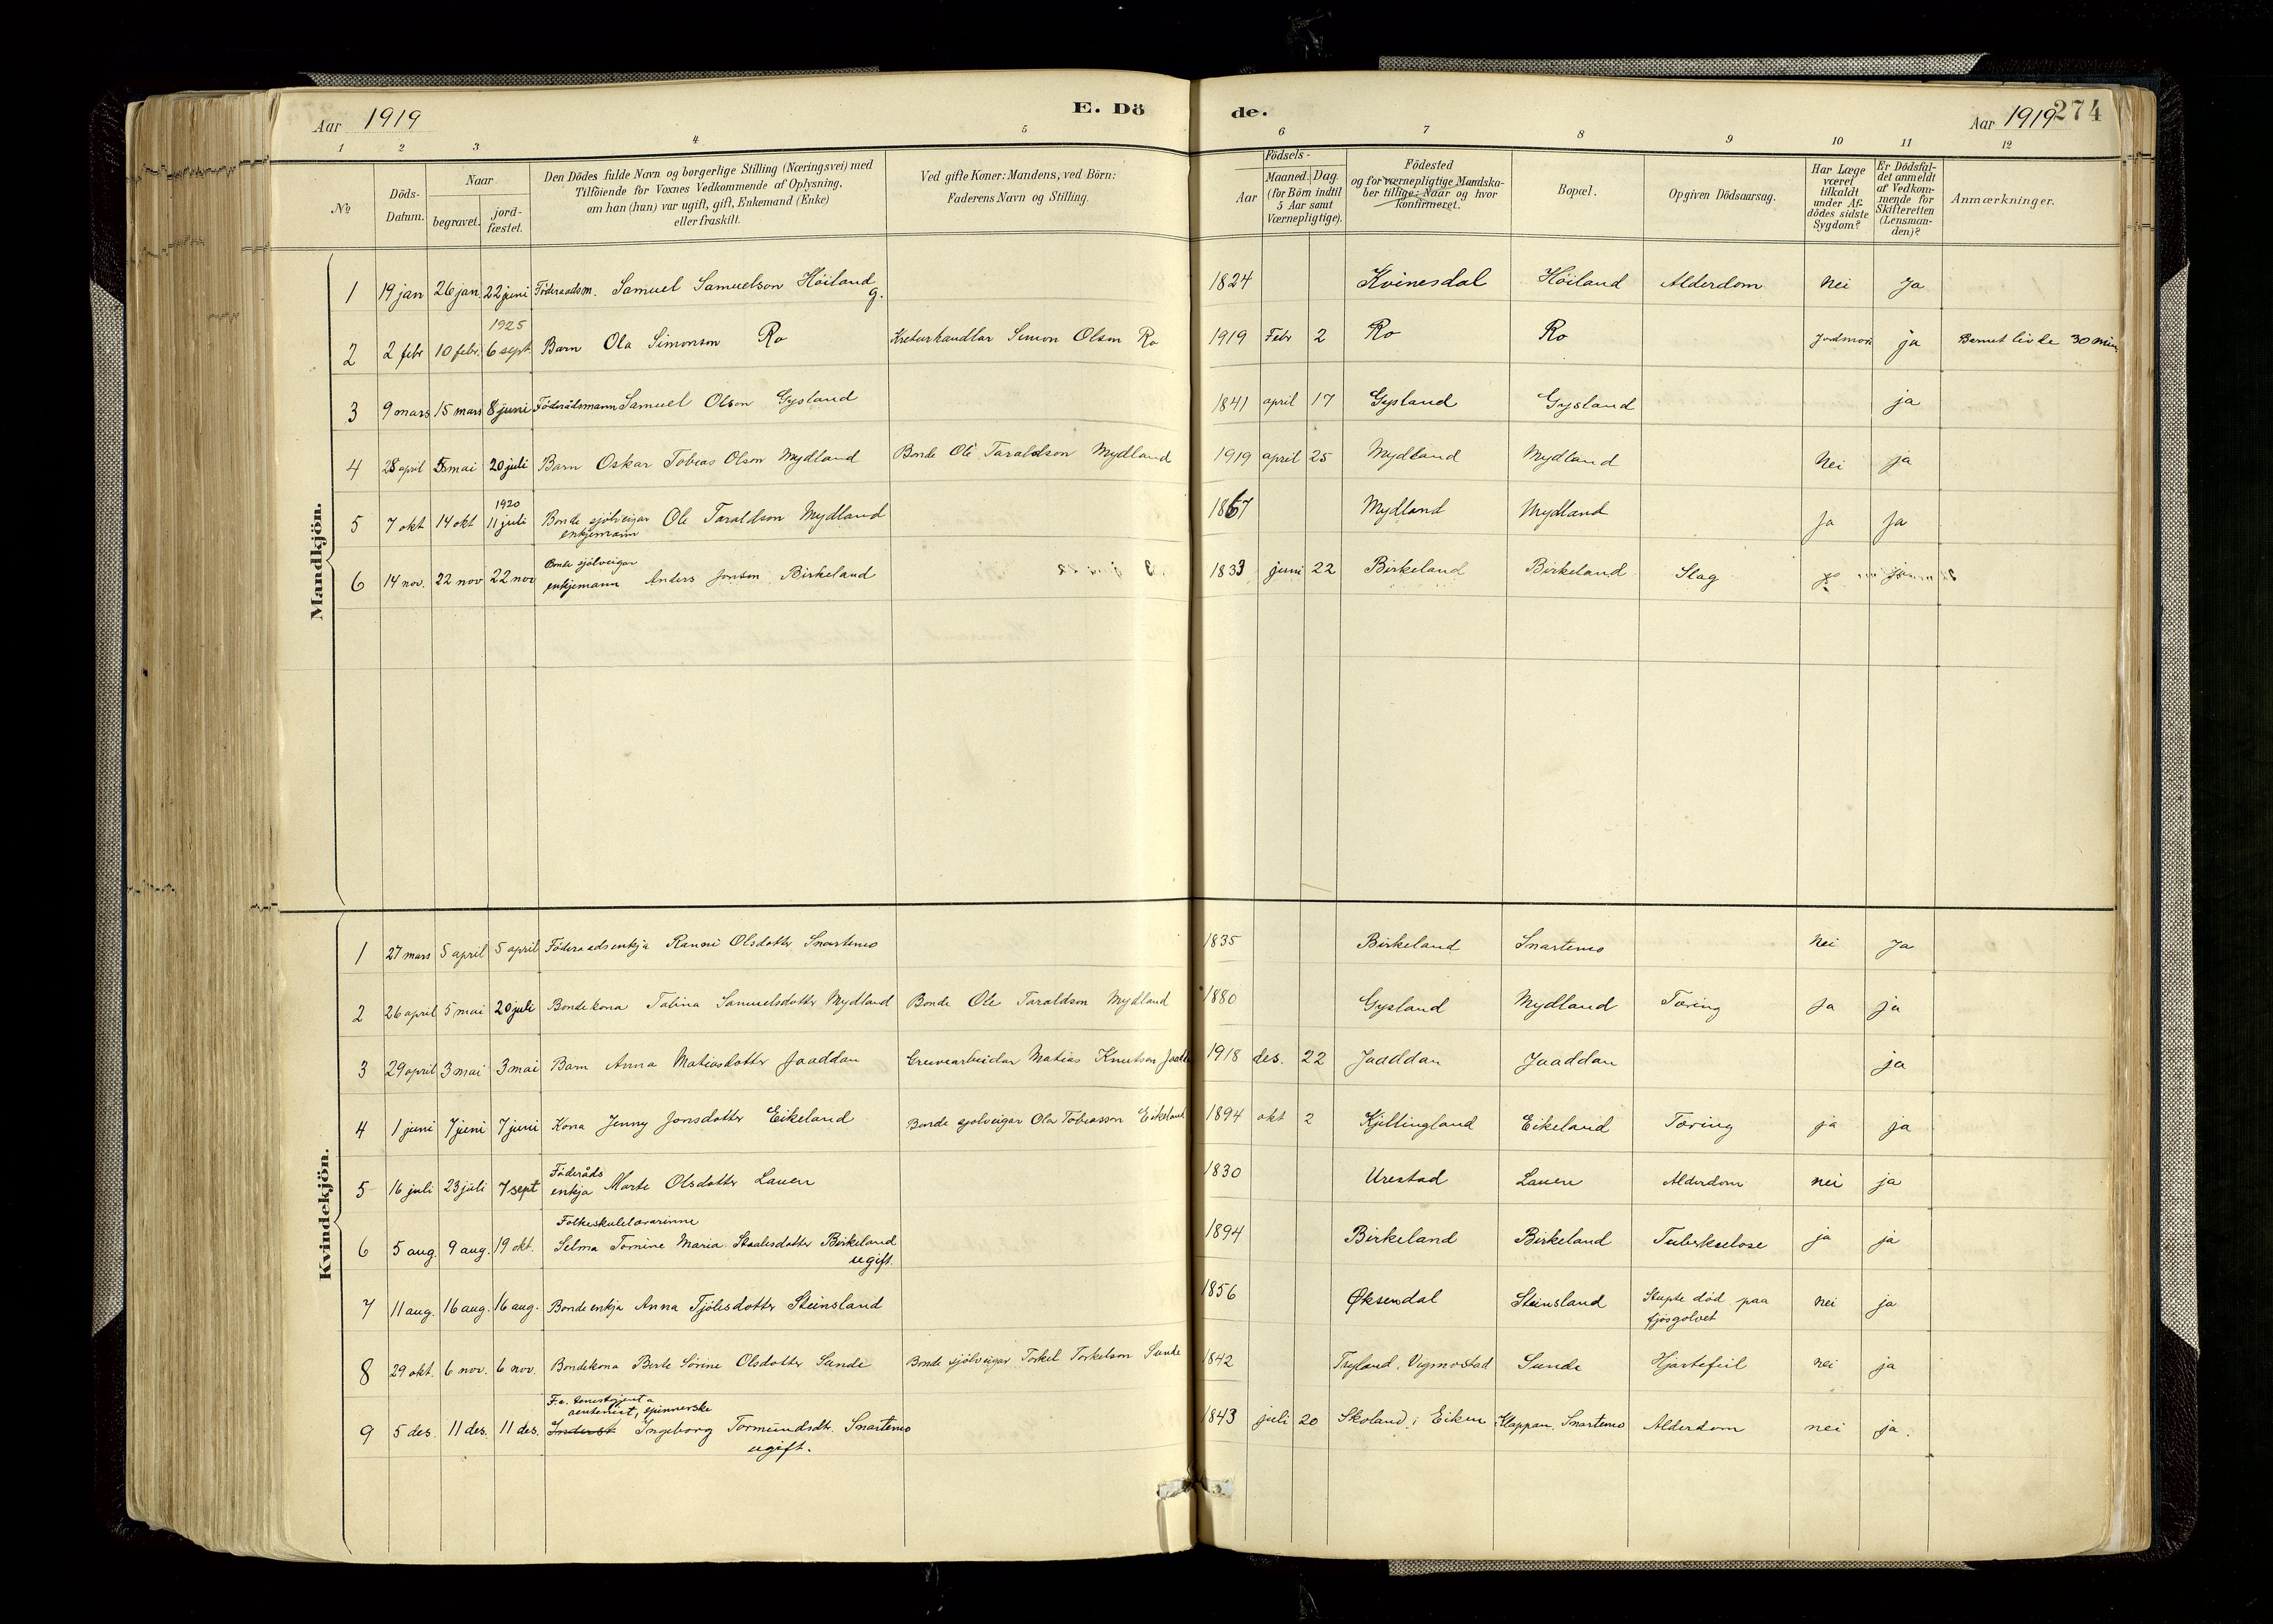 Aar 1919 E. Dö de. Aar 1919 274
1 2 3 4 5 6 7 8 9 10 11 12
№
Döds-Datum.
Naar
begravet.
jord-fæstet.
Den Dödes fulde Navn og borgerlige Stilling (Næringsvei) med
Tilföiende for Voxnes Vedkommende af Oplysning,
om han (hun) var ugift, gift, Enkemand (Enke)
eller fraskilt.
Ved gifte Koner: Mandens, ved Börn:
Faderens Navn og Stilling.
Födsels-
Aar
Maaned. Dag.
(for Börn indtil
5 Aar samt
Værnepligtige).
Födested
og for værnepligtige Mandska-
ber tillige: Naar og hvor
konfirmeret.
Bopæl.
Opgiven Dödsaarsag.
Har Læge
været
tilkaldt
under Af-
dödes sidste
Sygdom?
Er Dödsfal-
det anmeldt
af Vedkom-
mende for
Skifteretten
(Lensman-
den)?
Anmærkninger.
Mandkjön.
1 19 jan 26 jan. 22 juni Föderaadsm. Samuel Samuelson Höiland g. 1824 Kvinesdal Höiland Alderdom Nei Ja
1925
2 2 febr 10 febr. 6 sept. Barn Ola Simonson Ro Kreturhandlar Simon Olson Ro 1919 Febr 2 Ro Ro Jordmor ja Barnet livde 30 min.
3 9 mars 15 mars 8 juni Föderådsmann Samuel Olson Gysland 1841 april 17 Gysland Gysland ja
4 28 april 5 mai 20 juli Barn Oskar Tobias Olson Mydland Bonde Ole Taraldson Mydland 1919 april 25 Mydland Mydland Nei ja
1920
5 7 okt 14 okt 11 juli Bonde sjölveigar Ole Taraldson Mydland 1867 Mydland Mydland Ja Ja
enkjemann
Bonde sjölveigar
6 14 nov. 22 nov 22 nov enkjemann Anders Jonson Birkeland 1833 juni 22 Birkeland Birkeland Slag
Kvindekjön.
1 27 mars 5 april 5 april Föderaadsenkja Ranni Olsdotter Snartemo 1835 Birkeland Snartemo Nei Ja
2 26 april 5 mai 20 juli Bondekona Talina Samuelsdotter Mydland Bonde Ole Taraldson Mydland 1880 Gysland Mydland Tæring Ja ja
3 29 april 3 mai 3 mai Barn Anna Matiasdotter Jaaddan Gruvearbeidar Matias Knutson 1918 des. 22 Jaaddan Jaaddan ja
4 1 juni 7 juni 7 juni Kona Jenny Jonsdotter Eikeland Bonde sjolveigar Ola Tobiasson Eikeland 1894 okt 2 Kjellingland Eikeland Tæring ja ja
Föderåds
5 16 juli 23 juli 7 sept enkja Marte Olsdotter Lauen 1830 Urestad Lauen Alderdom nei ja
Folkeskulelærarinne
6 5 aug. 9 aug. 19 okt. Selma Tomine Maria Staalesdotter Birkeland 1894 Birkeland Birkeland Tuberkulose ja ja
ugift.
7 11 aug. 16 aug. 16 aug. Bondeenkja Anna Tjölesdotter Steinsland 1856 Öksendal Steinsland Stupte död paa nei ja
fjösgolvet
8 29 okt. 6 nov. 6 nov. Bondekona Berte Sörine Olsdotter Sunde Bonde sjölveigar Torkel Torkelson Sunde 1842 Tryland, Vigmostad Sunde Hjartefeil nei ja
F.v. tenestejenta
spinnerske
9 5 des. 11 des. 11 des. Inderst Ingeborg Tormundsdt. Snartemo 1843 juli 20 Skoland i Eiken Klappan, Snartemo Alderdom nei ja.
ugift.